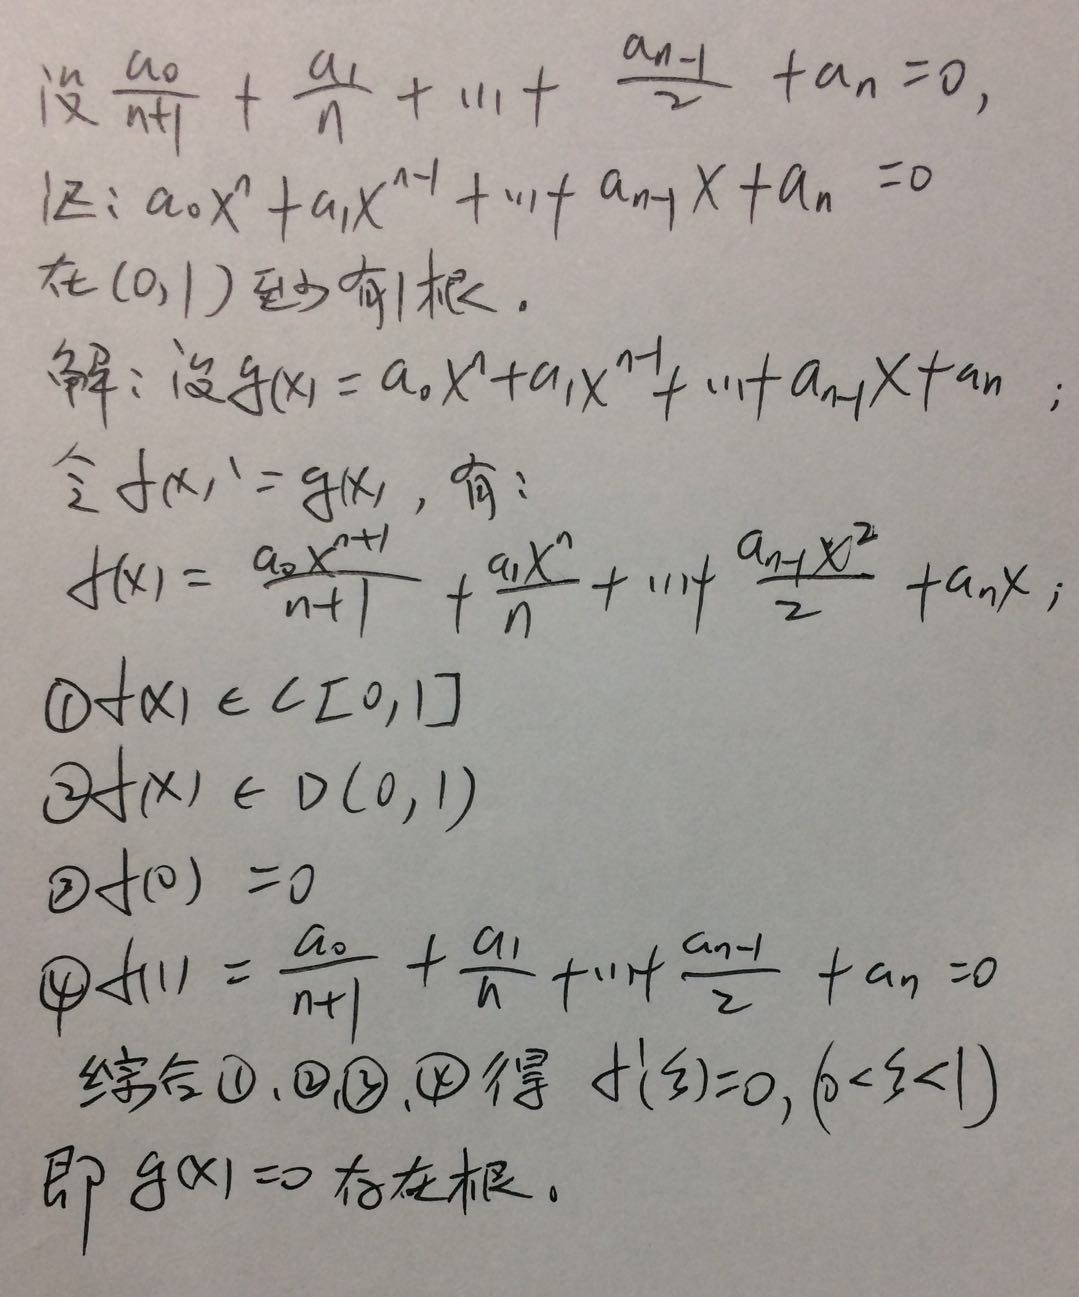 设 a₀/(n+1) + a₁/n + ... + aₙ₋₁/2 + aₙ = 0,
证: a₀xⁿ + a₁xⁿ⁻¹ + ... + aₙ₋₁x + aₙ = 0
在(0,1)至少有1根.
解: 设g(x) = a₀xⁿ + a₁xⁿ⁻¹ + ... + aₙ₋₁x + aₙ ;
令f(x)' = g(x), 有:
f(x) = a₀xⁿ⁺¹/(n+1) + a₁xⁿ/n + ... + aₙ₋₁x²/2 + aₙx ;
①f(x) ∈ C[0,1]
②f(x) ∈ D(0,1)
③f(0) = 0
④f(1) = a₀/(n+1) + a₁/n + ... + aₙ₋₁/2 + aₙ = 0
综合①、②、③、④得 f'(ξ)=0, (0<ξ<1)
即 g(x)=0 存在根。